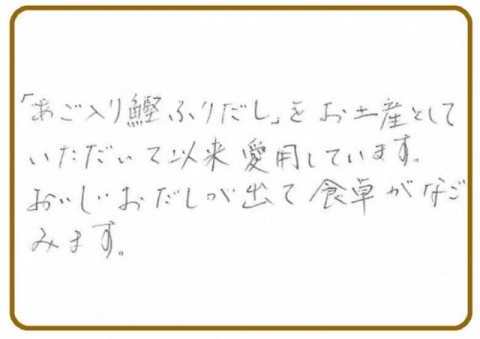 「あご入り鰹ふりだし」をお土産として
いただいて以来愛用しています。
おいしいおだしが出て食卓がなご
みます。